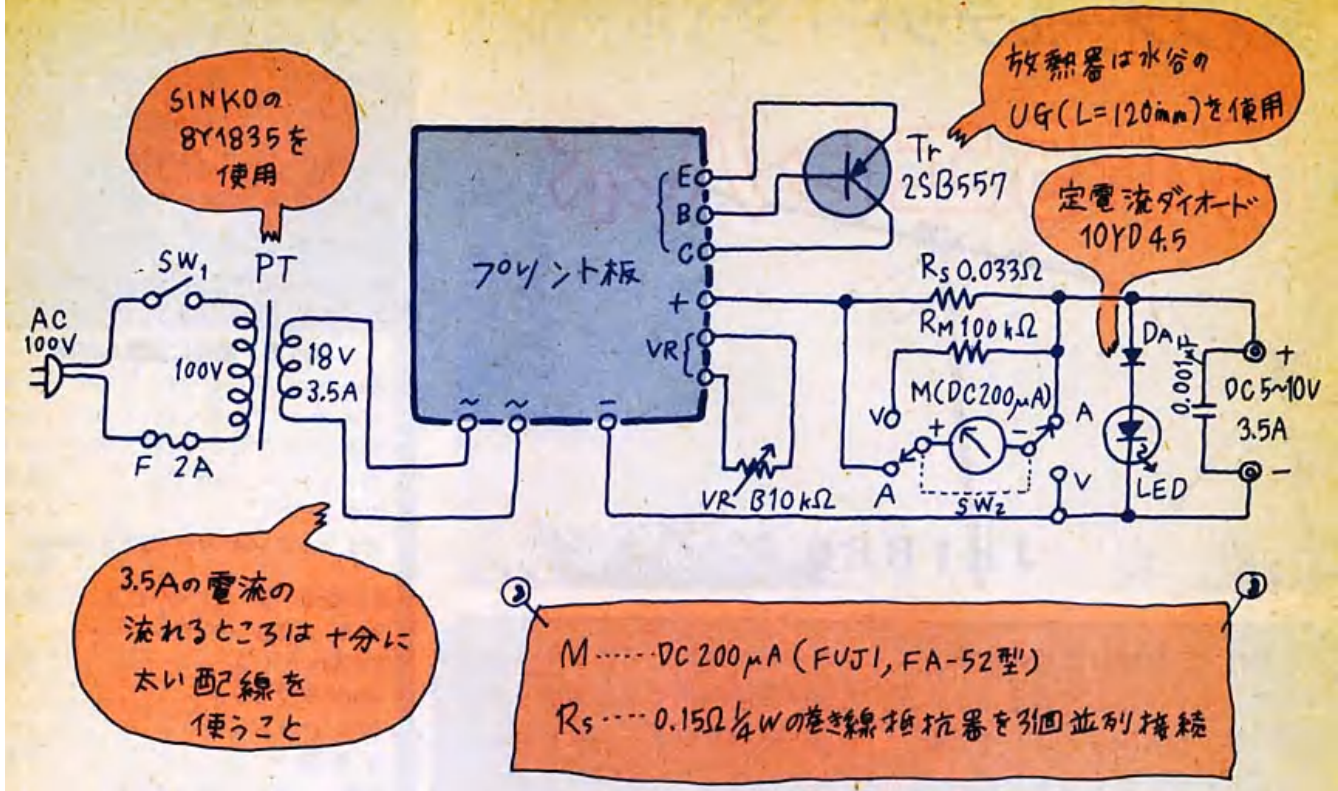 SINKOの
8Y1835を
使用
放熱器は水谷の
UG(L=120mm)を使用
Tr
2SB557
定電流ダイオード
10YD4.5
E
B
C
+
VR
プリント板
~
~
−
AC
100V
SW1
PT
100V
18V
3.5A
F 2A
Rs 0.033Ω
RM 100kΩ
M(DC200μA)
V
A
+
−
A
V
SW2
VR B10kΩ
DA
LED
0.001μF
+
DC5~10V
3.5A
−
3.5Aの電流の
流れるところは十分に
太い配線を
使うこと
M……DC200μA(FUJI,FA-52型)
Rs‥‥0.15Ω 1/4Wの巻き線抵抗器を 並列接続